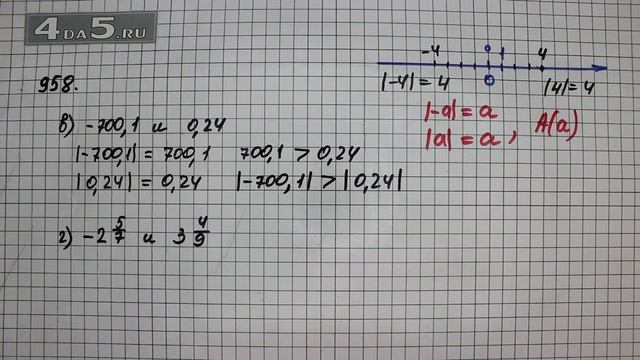 4DA5.RU
958.
-4 0 1 4
0
|-4| = 4 |4| = 4
|-a| = a
|a| = a , A(a)
в) -700,1 и 0,24
|-700,1| = 700,1 700,1 > 0,24
|0,24| = 0,24 |-700,1| > |0,24|
г) -2 5/7 и 3 4/9